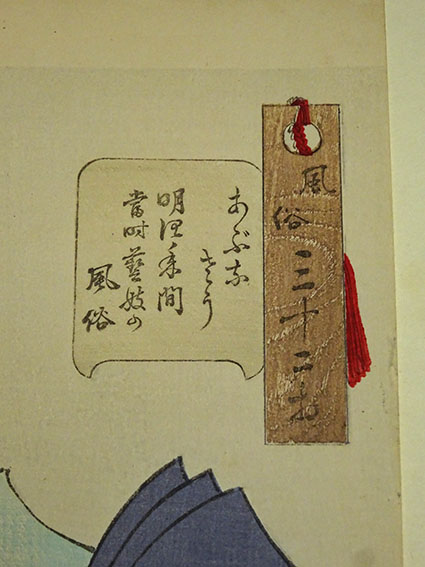 風俗三十二相
あぶな
さう
明治年間
當時藝妓の
風俗